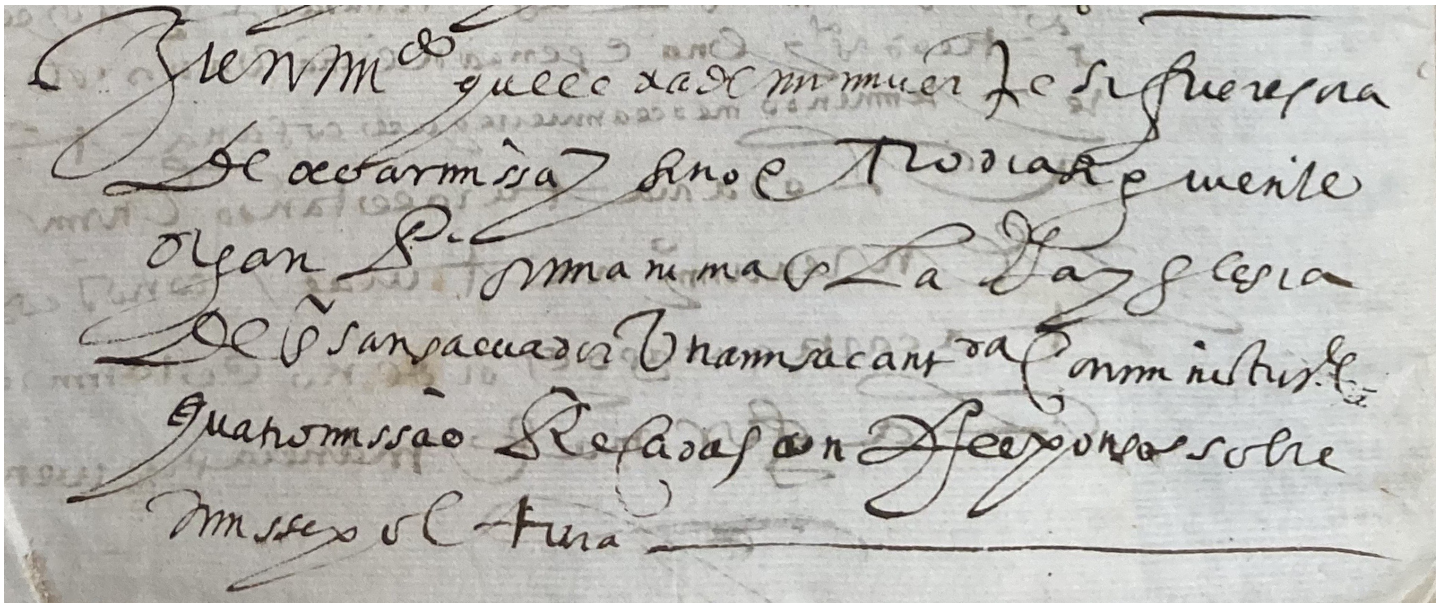 yten mdo que el dia de mi muerte si fuere ora
de desir missa y sino el otro dia siguiente
digan Pr mi anima en la dha yglesia
de sr san salvador Una missa cantda Con ministros
quatro missas Resadas con Responsos sobre
mi ssepoltura